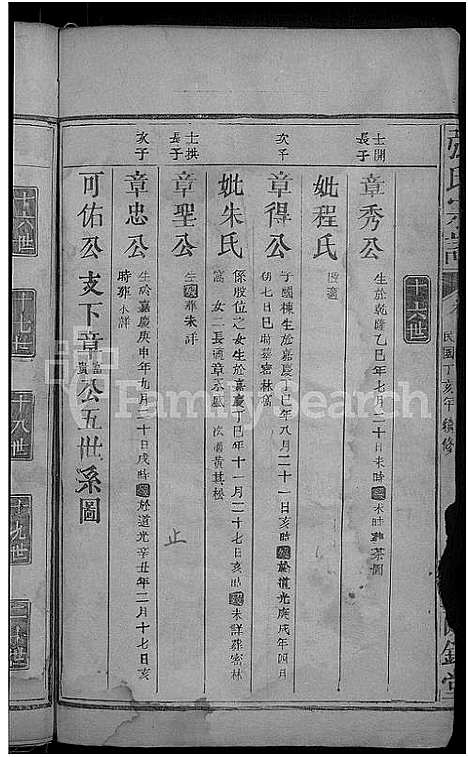 張氏宗譜
民國丁亥年續修
十六世
士開
長子
章秀公
生於乾隆乙巳年七月二十日未時 未時葬 茶園
妣程氏
改適
次子
章得公
字國棟生於嘉慶丁巳年八月二十一日亥時 於道光庚戌年四月
初七日巳時葬密林窩
妣朱氏
係股位之女生於嘉慶丁巳年十一月二十七日亥時 未詳葬密林
窩 女二長適章永 次適黃其松
士拱
長子
章聖公
生 葬未詳
次子
章忠公
生於嘉慶庚申年九月二十日戌時 於道光辛丑年二月十七日亥
時葬未詳
止
可佑公支下章 公五世系圖
十六世
十七世
十八世
十九世
二十世
FamilySearch